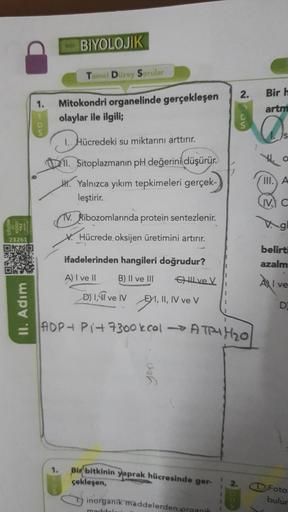 BİYOLOJİK
Temel Düzey Sorular
1. Mitokondri organelinde gerçekleşen
olaylar ile ilgili;
I. Hücredeki su miktarını arttırır.
II. Sitoplazmanın pH değerini düşürür.
III. Yalnızca yıkım tepkimeleri gerçek-
leştirir.
IV. Ribozomlarında protein sentezlenir.
V. Hücrede oksijen üretimini artırır.
ifadelerinden hangileri doğrudur?
A) I ve II B) II ve III C) III ve V
D) I, II ve IV E) I, II, IV ve V
ADP + Pi + 7300 kcal → ATP + H2O
yap
23261
II. Adım
1. Bir bitkinin yaprak hücresinde ger-
çekleşen,
I. inorganik maddelerden organik
2. Bir
artm
III. A
IV. C
belirti
azalm
A) I ve
D)
2. I. Foto
bulun